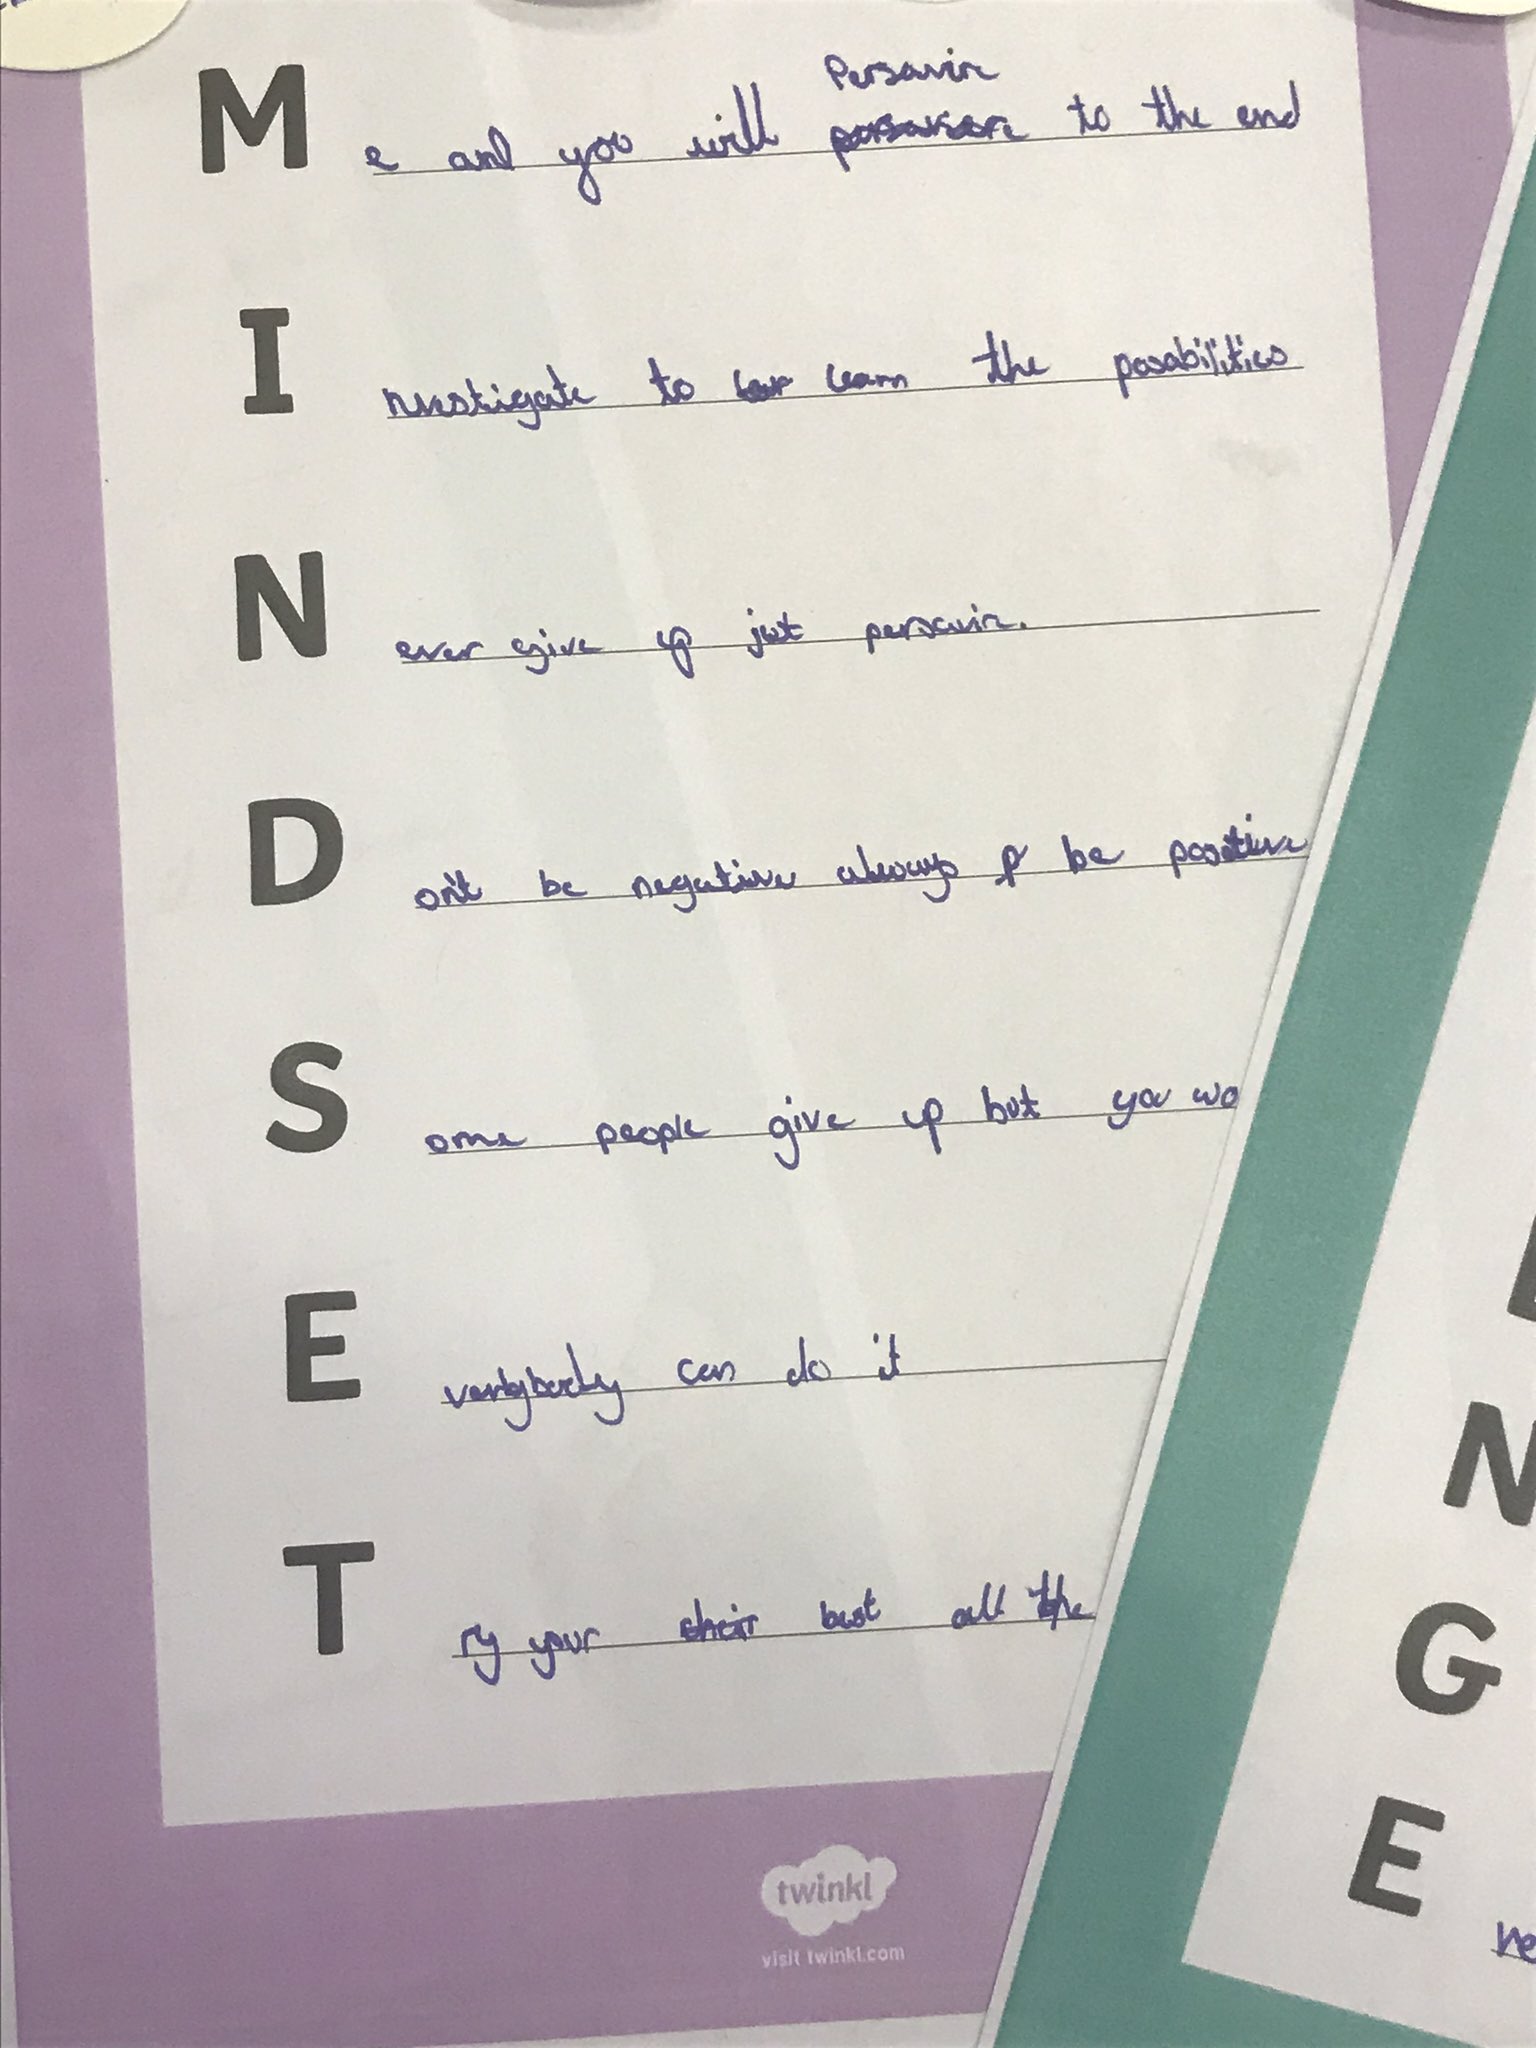 Persavire
Me and you will to the end
Investigate to learn the posabilities
Never give up just persavire.
Don't be negative always be posative
Some people give up but you wo
Everybody can do it
Try your best all the
twinkl
visit twinkl.com
N
G
E
ne